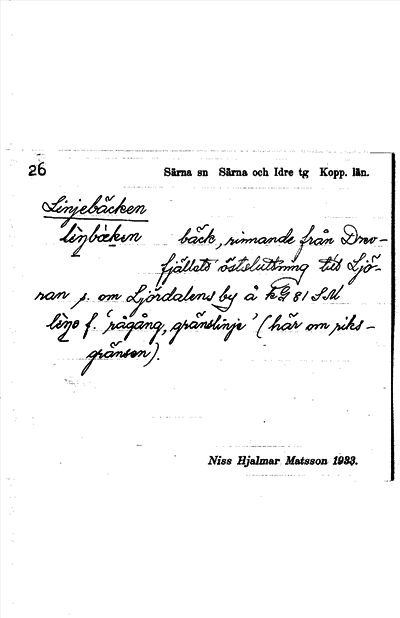 26 Särna sn Särna och Idre tg Kopp. län.
Linjebäcken
bäck, rinnande från Drev-
fjällets östsluttning till Ljö-
ran s. om Ljördalens by å kG 81 SM
f. 'rågång, gränslinje' (här om riks-
gränsen).
Niss Hjalmar Matsson 1933.